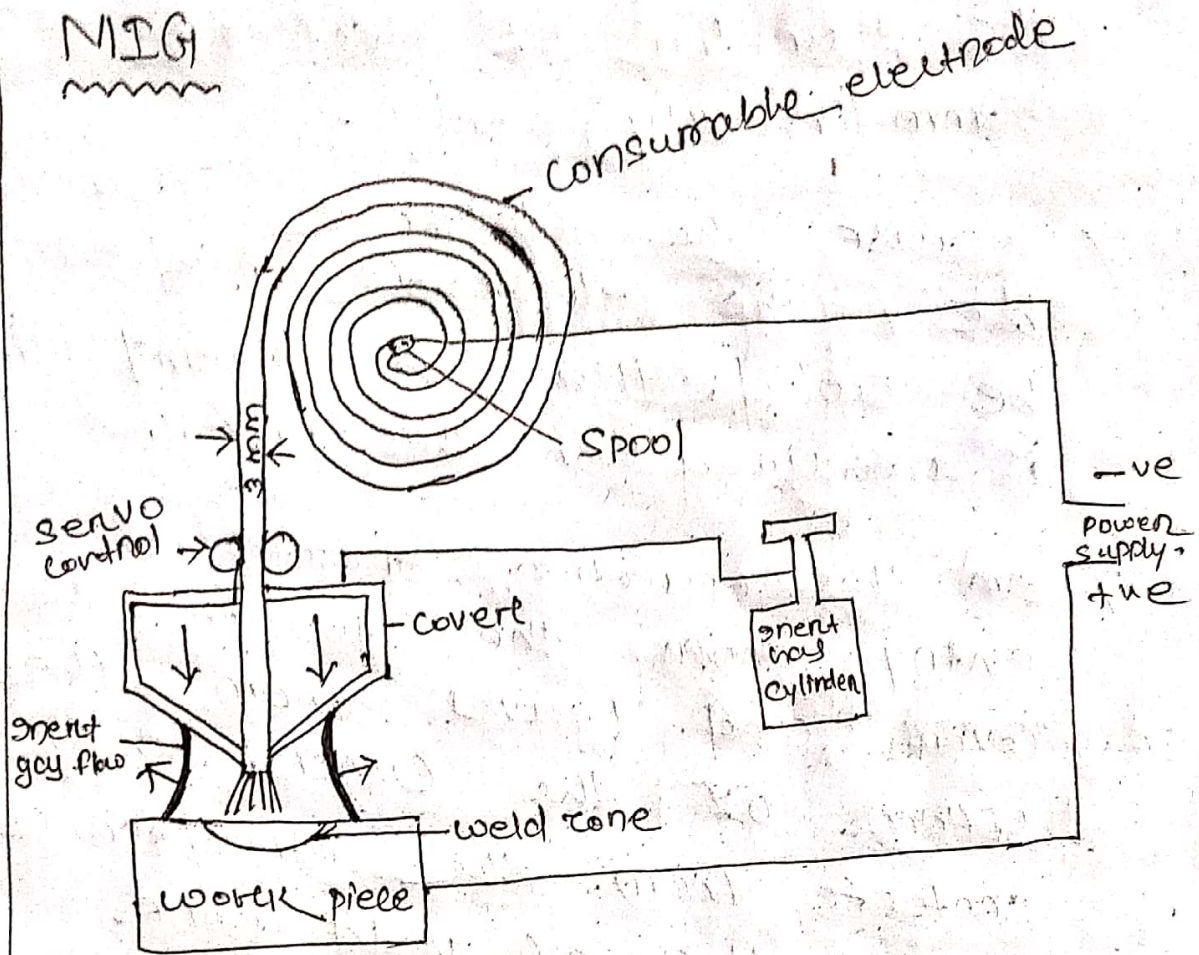 MIG
Consumable electrode
Spool
3 mm
servo
control
-ve
power
supply.
+ve
cover
inert
gas
cylinder
inert
gas flow
weld zone
work piece